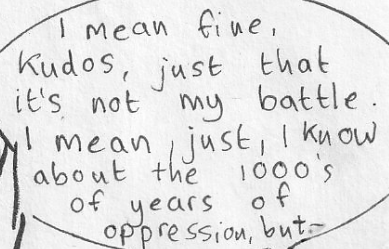 I mean fine,
Kudos, just that
it's not my battle.
I mean, just, I know
about the 1000's
of years of
oppression, but-